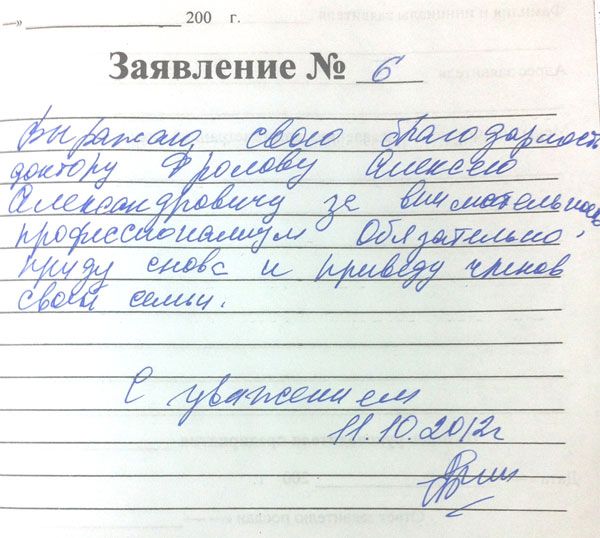 —»____________________200 г.
Заявление № 6
Выражаю свою благодарность
доктору Фролову Алексею
Александровичу за внимательность,
профессионализм Обязательно
приду снова и приведу членов
своей семьи.
С уважением
11.10.2012г